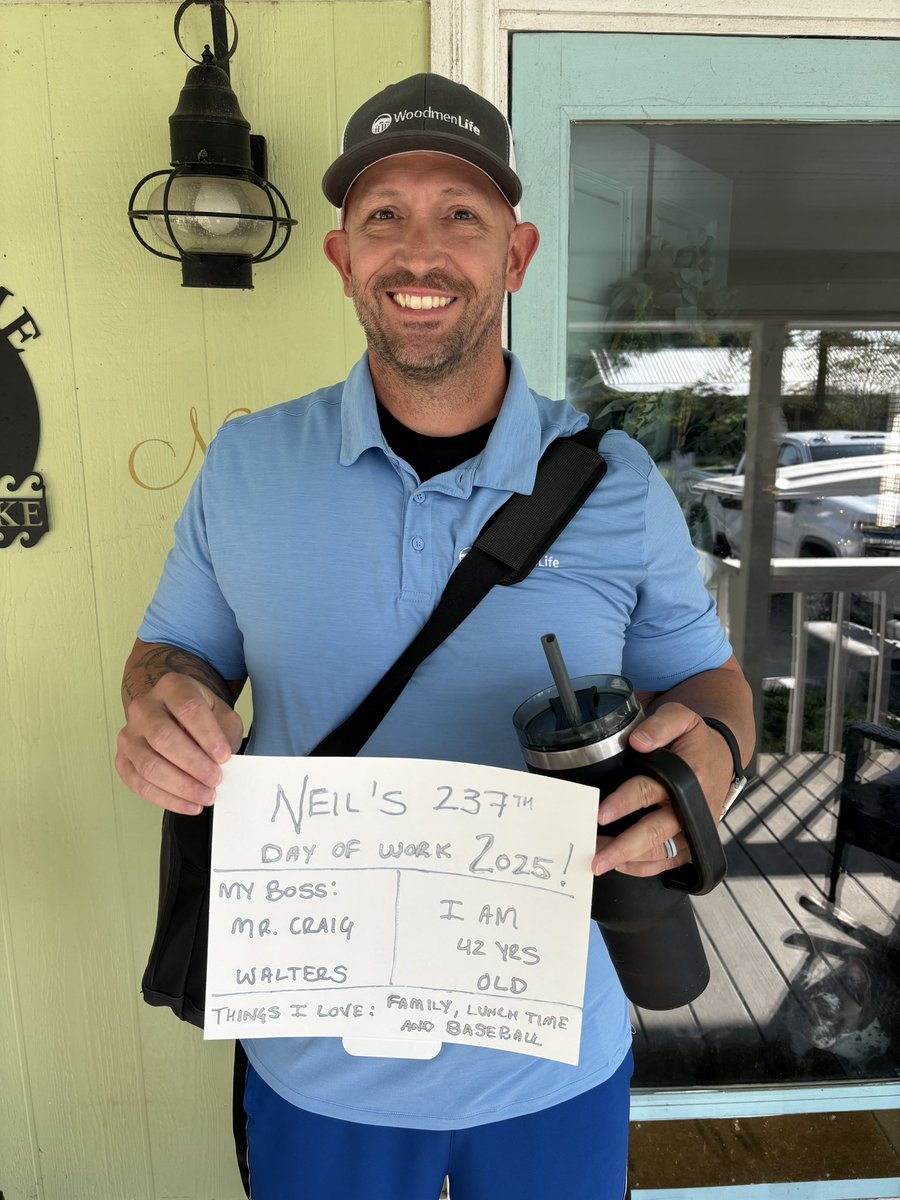 WoodmenLife
Life
KE
NEIL'S 237TH
DAY OF WORK 2025!
MY BOSS:
MR. CRAIG
WALTERS
I AM
42 YRS
OLD
THINGS I LOVE: FAMILY, LUNCH TIME
AND BASEBALL